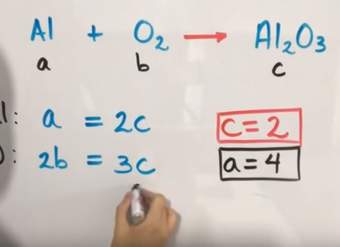 Al + O₂ → Al₂O₃
a b c
: a = 2c
: 2b = 3c
c = 2
a = 4